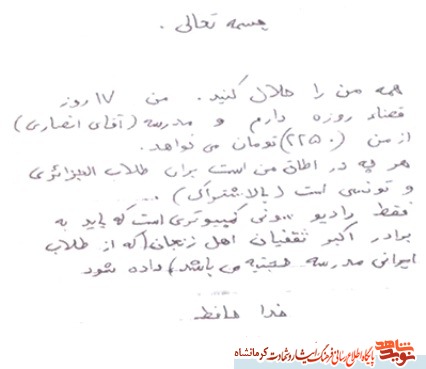 بسمه تعالی.
همه من را حلال کنید. من ۱۷ روز
قضاء روزه دارم و مدرسه (آقای انصاری)
از من (۲۲۵۰) تومان می خواهد.
هر چه در اطاق من است برای طلاب الجزائری
و تونسی است (بالاشتراک).
فقط رادیو ... کمپیوتری است که باید به
برادر اکبر ثقفیان اهل زنجان (که از طلاب
ایرانی مدرسه حجتیه می باشد) داده شود
خدا حافظ
نوید شاهد پایگاه اطلاع رسانی فرهنگ ایثار و شهادت کرمانشاه